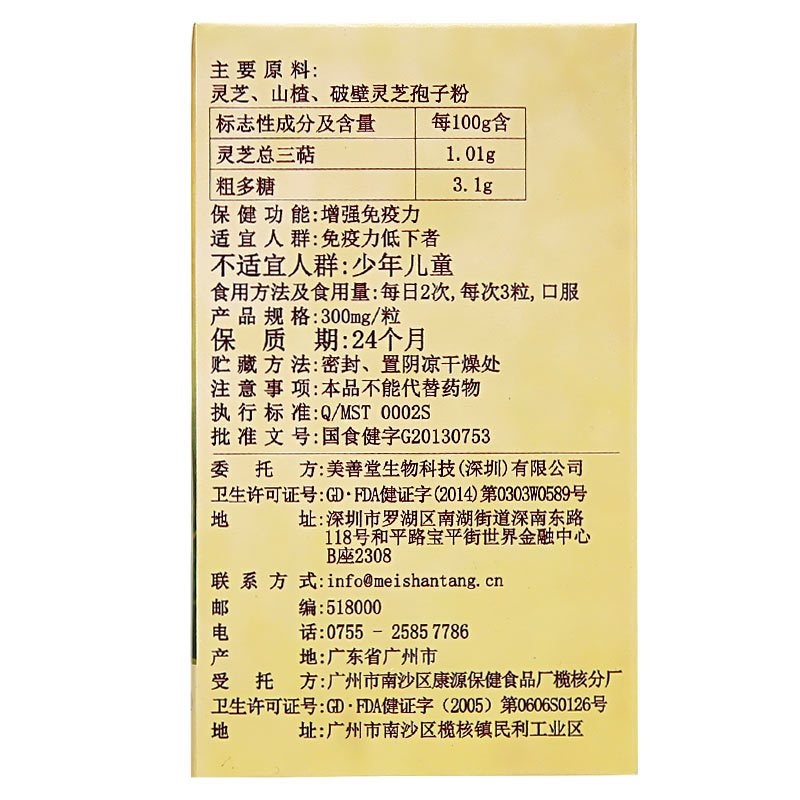 主要原料:
灵芝、山楂、破壁灵芝孢子粉
标志性成分及含量 每100g含
灵芝总三萜 1.01g
粗多糖 3.1g
保健功能:增强免疫力
适宜人群:免疫力低下者
不适宜人群:少年儿童
食用方法及食用量:每日2次,每次3粒,口服
产品规格:300mg/粒
保质期:24个月
贮藏方法:密封、置阴凉干燥处
注意事项:本品不能代替药物
执行标准:Q/MST 0002S
批准文号:国食健字G20130753
委托方:美善堂生物科技(深圳)有限公司
卫生许可证号:GD·FDA健证字(2014)第0303W0589号
地址:深圳市罗湖区南湖街道深南东路
118号和平路宝平街世界金融中心
B座2308
联系方式:info@meishantang.cn
邮编:518000
电话:0755 - 25857786
产地:广东省广州市
受托方:广州市南沙区康源保健食品厂榄核分厂
卫生许可证号:GD·FDA健证字（2005）第0606S0126号
地址:广州市南沙区榄核镇民利工业区